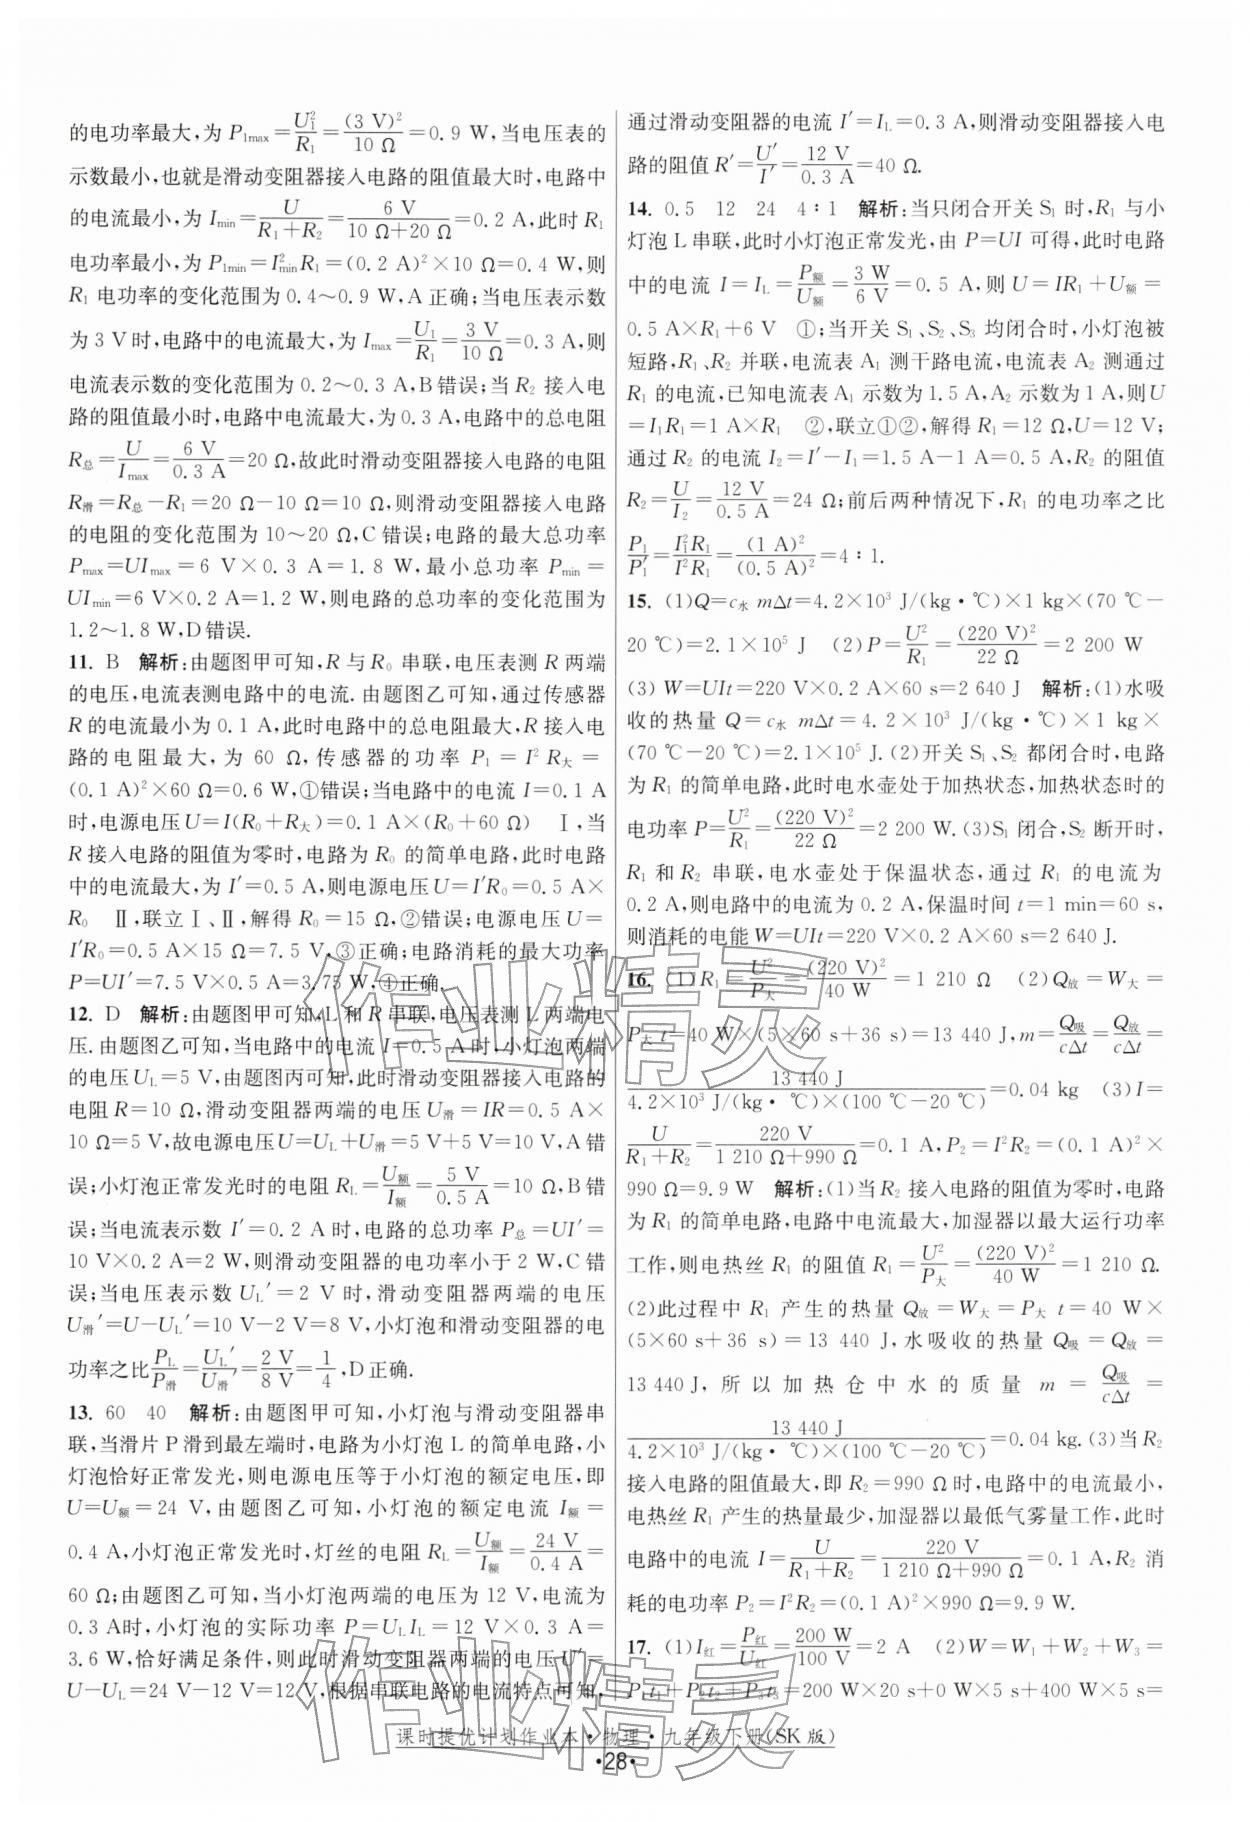 的电功率最大,为 P₁max=U₁²/R₁=(3 V)²/10 Ω=0.9 W,当电压表的
示数最小,也就是滑动变阻器接入电路的阻值最大时,电路中
的电流最小,为 Imin=U/(R₁+R₂)=6 V/(10 Ω+20 Ω)=0.2 A,此时 R₁
电功率最小,为 P₁min=I²minR₁=(0.2 A)²×10 Ω=0.4 W,则
R₁ 电功率的变化范围为 0.4~0.9 W,A 正确;当电压表示数
为 3 V 时,电路中的电流最大,为 Imax=U₁/R₁=3 V/10 Ω=0.3 A,则
电流表示数的变化范围为 0.2~0.3 A,B错误;当 R₂ 接入电
路的阻值最小时,电路中电流最大,为 0.3 A,电路中的总电阻
R总=U/Imax=6 V/0.3 A=20 Ω,故此时滑动变阻器接入电路的电阻
R滑=R总-R₁=20 Ω-10 Ω=10 Ω,则滑动变阻器接入电路
的电阻的变化范围为 10~20 Ω,C 错误;电路的最大总功率
Pmax=UImax=6 V×0.3 A=1.8 W,最小总功率 Pmin=
UImin=6 V×0.2 A=1.2 W,则电路的总功率的变化范围为
1.2~1.8 W,D错误.
11. B 解析:由题图甲可知,R 与 R₀ 串联,电压表测 R 两端
的电压,电流表测电路中的电流.由题图乙可知,通过传感器
R 的电流最小为 0.1 A,此时电路中的总电阻最大,R 接入电
路的电阻最大,为 60 Ω,传感器的功率 P₁=I²R大=
(0.1 A)²×60 Ω=0.6 W,①错误;当电路中的电流 I=0.1 A
时,电源电压 U=I(R₀+R大)=0.1 A×(R₀+60 Ω) Ⅰ,当
R 接入电路的阻值为零时,电路为 R₀ 的简单电路,此时电路
中的电流最大,为 I′=0.5 A,则电源电压 U=I′R₀=0.5 A×
R₀ Ⅱ,联立Ⅰ、Ⅱ,解得 R₀=15 Ω,②错误;电源电压 U=
I′R₀=0.5 A×15 Ω=7.5 V,③正确;电路消耗的最大功率
P=UI′=7.5 V×0.5 A=3.75 W,④正确.
12. D 解析:由题图甲可知,L 和 R 串联,电压表测 L 两端电
压.由题图乙可知,当电路中的电流 I=0.5 A 时,小灯泡两端
的电压 UL=5 V,由题图丙可知,此时滑动变阻器接入电路的
电阻 R=10 Ω,滑动变阻器两端的电压 U滑=IR=0.5 A×
10 Ω=5 V,故电源电压 U=UL+U滑=5 V+5 V=10 V,A 错
误;小灯泡正常发光时的电阻 RL=U额/I额=5 V/0.5 A=10 Ω,B错
误;当电流表示数 I′=0.2 A 时,电路的总功率 P总=UI′=
10 V×0.2 A=2 W,则滑动变阻器的电功率小于 2 W,C 错
误;当电压表示数 UL′=2 V 时,滑动变阻器两端的电压
U滑′=U-UL′=10 V-2 V=8 V,小灯泡和滑动变阻器的电
功率之比PL/P滑=UL′/U滑′=2 V/8 V=1/4,D 正确.
13. 60 40 解析:由题图甲可知,小灯泡与滑动变阻器串
联,当滑片 P 滑到最左端时,电路为小灯泡 L 的简单电路,小
灯泡恰好正常发光,则电源电压等于小灯泡的额定电压,即
U=U额=24 V,由题图乙可知,小灯泡的额定电流 I额=
0.4 A,小灯泡正常发光时,灯丝的电阻 RL=U额/I额=24 V/0.4 A=
60 Ω;由题图乙可知,当小灯泡两端的电压为 12 V,电流为
0.3 A时,小灯泡的实际功率 P=ULIL=12 V×0.3 A=
3.6 W,恰好满足条件,则此时滑动变阻器两端的电压 U′=
U-UL=24 V-12 V=12 V,根据串联电路的电流特点可知,
通过滑动变阻器的电流 I′=IL=0.3 A,则滑动变阻器接入电
路的阻值 R′=U′/I′=12 V/0.3 A=40 Ω.
14. 0.5 12 24 4∶1 解析:当只闭合开关 S₁ 时,R₁ 与小
灯泡 L 串联,此时小灯泡正常发光,由 P=UI 可得,此时电路
中的电流 I=IL=P额/U额=3 W/6 V=0.5 A,则 U=IR₁+U额=
0.5 A×R₁+6 V ①;当开关 S₁、S₂、S₃ 均闭合时,小灯泡被
短路,R₁、R₂ 并联,电流表 A₁ 测干路电流,电流表 A₂ 测通过
R₁ 的电流,已知电流表 A₁ 示数为 1.5 A,A₂ 示数为 1 A,则 U
=I₁R₁=1 A×R₁ ②,联立①②,解得 R₁=12 Ω,U=12 V;
通过 R₂ 的电流 I₂=I′-I₁=1.5 A-1 A=0.5 A,R₂ 的阻值
R₂=U/I₂=12 V/0.5 A=24 Ω;前后两种情况下,R₁ 的电功率之比
P₁/P₁′=I₁²R₁/I²R₁=(1 A)²/(0.5 A)²=4∶1.
15. (1)Q=c水 mΔt=4.2×10³ J/(kg·℃)×1 kg×(70 ℃-
20 ℃)=2.1×10⁵ J (2)P=U²/R₁=(220 V)²/22 Ω=2 200 W
(3) W=UIt=220 V×0.2 A×60 s=2 640 J 解析:(1)水吸
收的热量 Q=c水 mΔt=4.2×10³ J/(kg·℃)×1 kg×
(70 ℃-20 ℃)=2.1×10⁵ J.(2)开关 S₁、S₂ 都闭合时,电路
为 R₁ 的简单电路,此时电水壶处于加热状态,加热状态时的
电功率 P=U²/R₁=(220 V)²/22 Ω=2 200 W.(3)S₁ 闭合,S₂ 断开时,
R₁ 和 R₂ 串联,电水壶处于保温状态,通过 R₁ 的电流为
0.2 A,则电路中的电流为 0.2 A,保温时间 t=1 min=60 s,
则消耗的电能 W=UIt=220 V×0.2 A×60 s=2 640 J.
16. (1)R₁=U²/P大=(220 V)²/40 W=1 210 Ω (2)Q放=W大=
P大 t=40 W×(5×60 s+36 s)=13 440 J,m=Q吸/cΔt=Q放/cΔt=
13 440 J/4.2×10³ J/(kg·℃)×(100 ℃-20 ℃)=0.04 kg (3)I=
U/(R₁+R₂)=220 V/(1 210 Ω+990 Ω)=0.1 A,P₂=I²R₂=(0.1 A)²×
990 Ω=9.9 W 解析:(1)当 R₂ 接入电路的阻值为零时,电路
为 R₁ 的简单电路,电路中电流最大,加湿器以最大运行功率
工作,则电热丝 R₁ 的阻值 R₁=U²/P大=(220 V)²/40 W=1 210 Ω.
(2)此过程中 R₁ 产生的热量 Q放=W大=P大 t=40 W×
(5×60 s+36 s)=13 440 J,水吸收的热量 Q吸=Q放=
13 440 J,所以加热仓中水的质量 m=Q吸/cΔt=
13 440 J/4.2×10³ J/(kg·℃)×(100 ℃-20 ℃)=0.04 kg.(3)当 R₂
接入电路的阻值最大,即 R₂=990 Ω 时,电路中的电流最小,
电热丝 R₁ 产生的热量最少,加湿器以最低气雾量工作,此时
电路中的电流 I=U/(R₁+R₂)=220 V/(1 210 Ω+990 Ω)=0.1 A,R₂ 消
耗的电功率 P₂=I²R₂=(0.1 A)²×990 Ω=9.9 W.
17. (1)I红=P红/U红=200 W/100 V=2 A (2)W=W₁+W₂+W₃=
P₁t₁+P₂t₂+P₃t₃=200 W×20 s+0 W×5 s+400 W×5 s=
课时提优计划作业本·物理·九年级下册(SK 版)
·28·
作业精灵
作业精灵